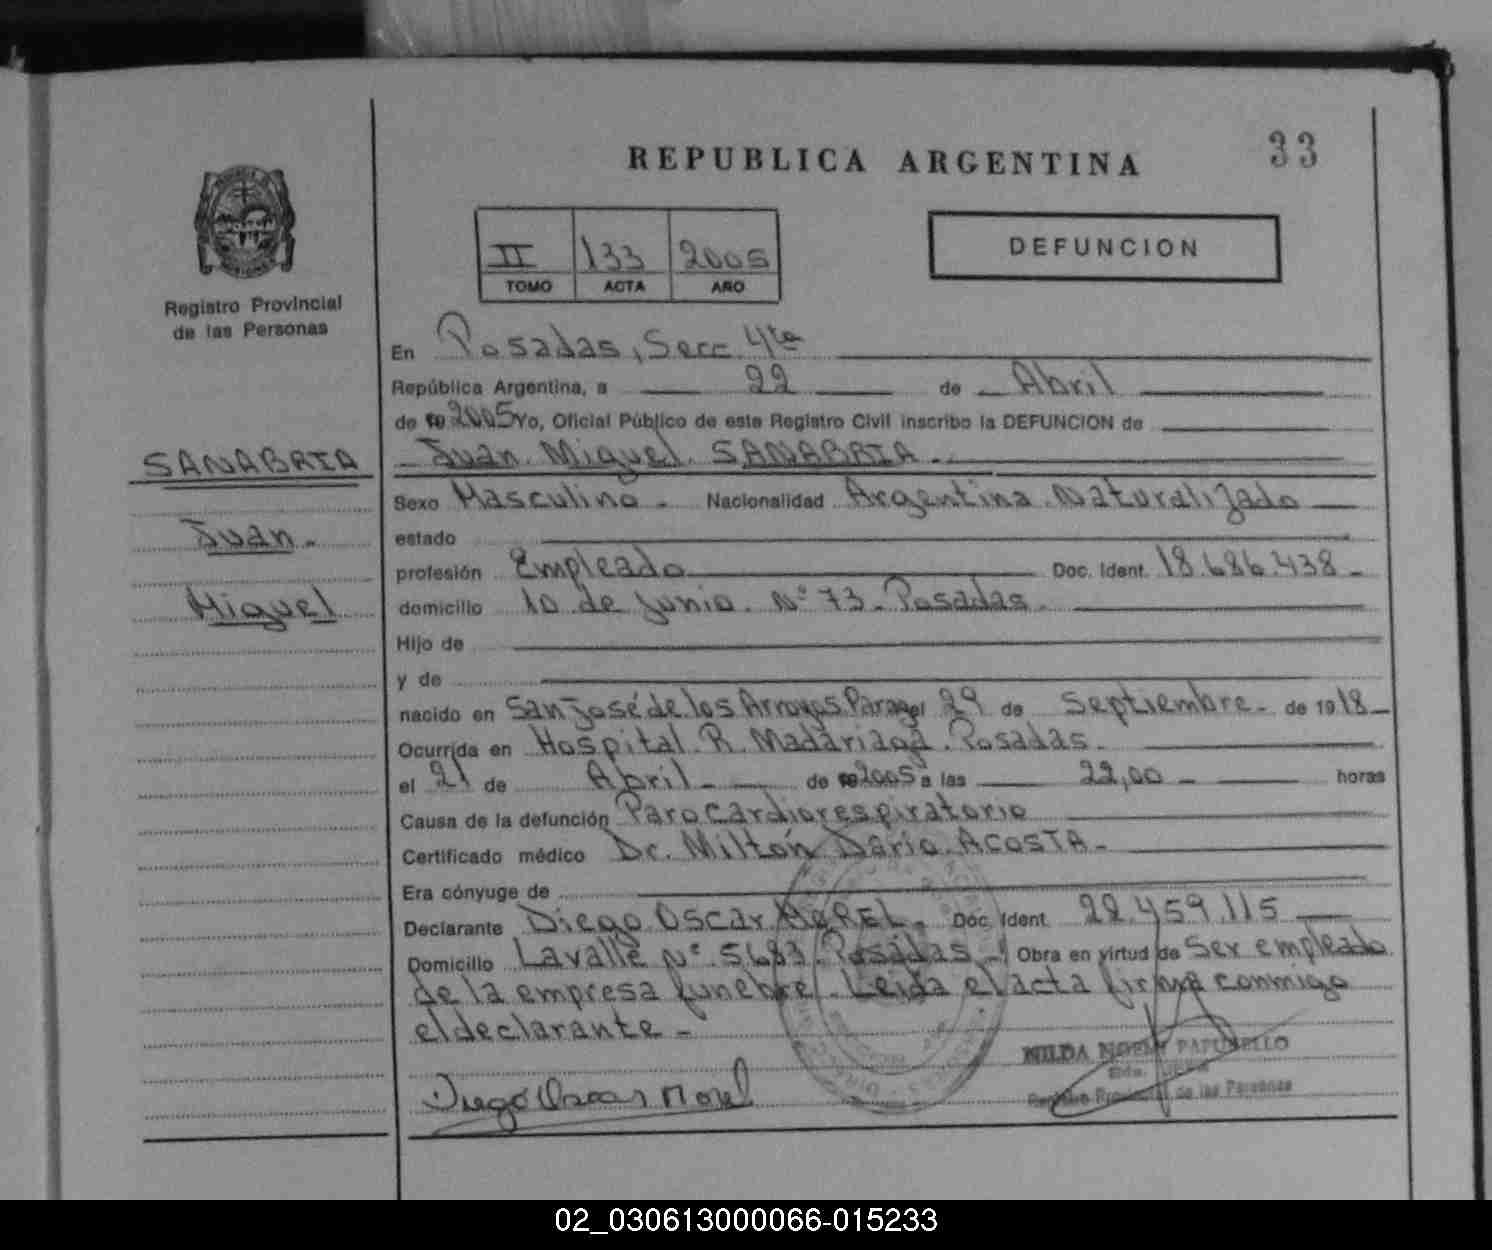 33
REPUBLICA ARGENTINA
II 133 2005
TOMO ACTA AÑO
DEFUNCION
Registro Provincial
de las Personas
SANABRIA
Juan.-
Miguel
En Posadas, Secc. 4ta
República Argentina, a 22 de Abril
de 2005 Yo, Oficial Público de este Registro Civil inscribo la DEFUNCION de
Juan Miguel SANABRIA.-
Sexo Masculino.- Nacionalidad Argentina Naturalizado
estado
profesión Empleado Doc. Ident. 18.686.438-
domicilio 10 de junio N° 73- Posadas.
Hijo de
y de
nacido en San José de los Arroyos. el 29 de Septiembre- de 1918-
Ocurrida en Hospital R. Madariaga. Posadas.
el 21 de Abril- de 2005 a las 22,00 - horas
Causa de la defunción Paro cardiorespiratorio
Certificado médico Dr. Milton Darío ACOSTA-
Era cónyuge de
Declarante Diego Oscar MOREL- Doc. Ident. 22.459.115
Domicilio Lavalle N° 5683 Posadas- Obra en virtud de Ser empleado
de la empresa funebre. Leida el acta firma conmigo
el declarante-
Diego Oscar Morel
Registro Provincial de las Personas
02_030613000066-015233